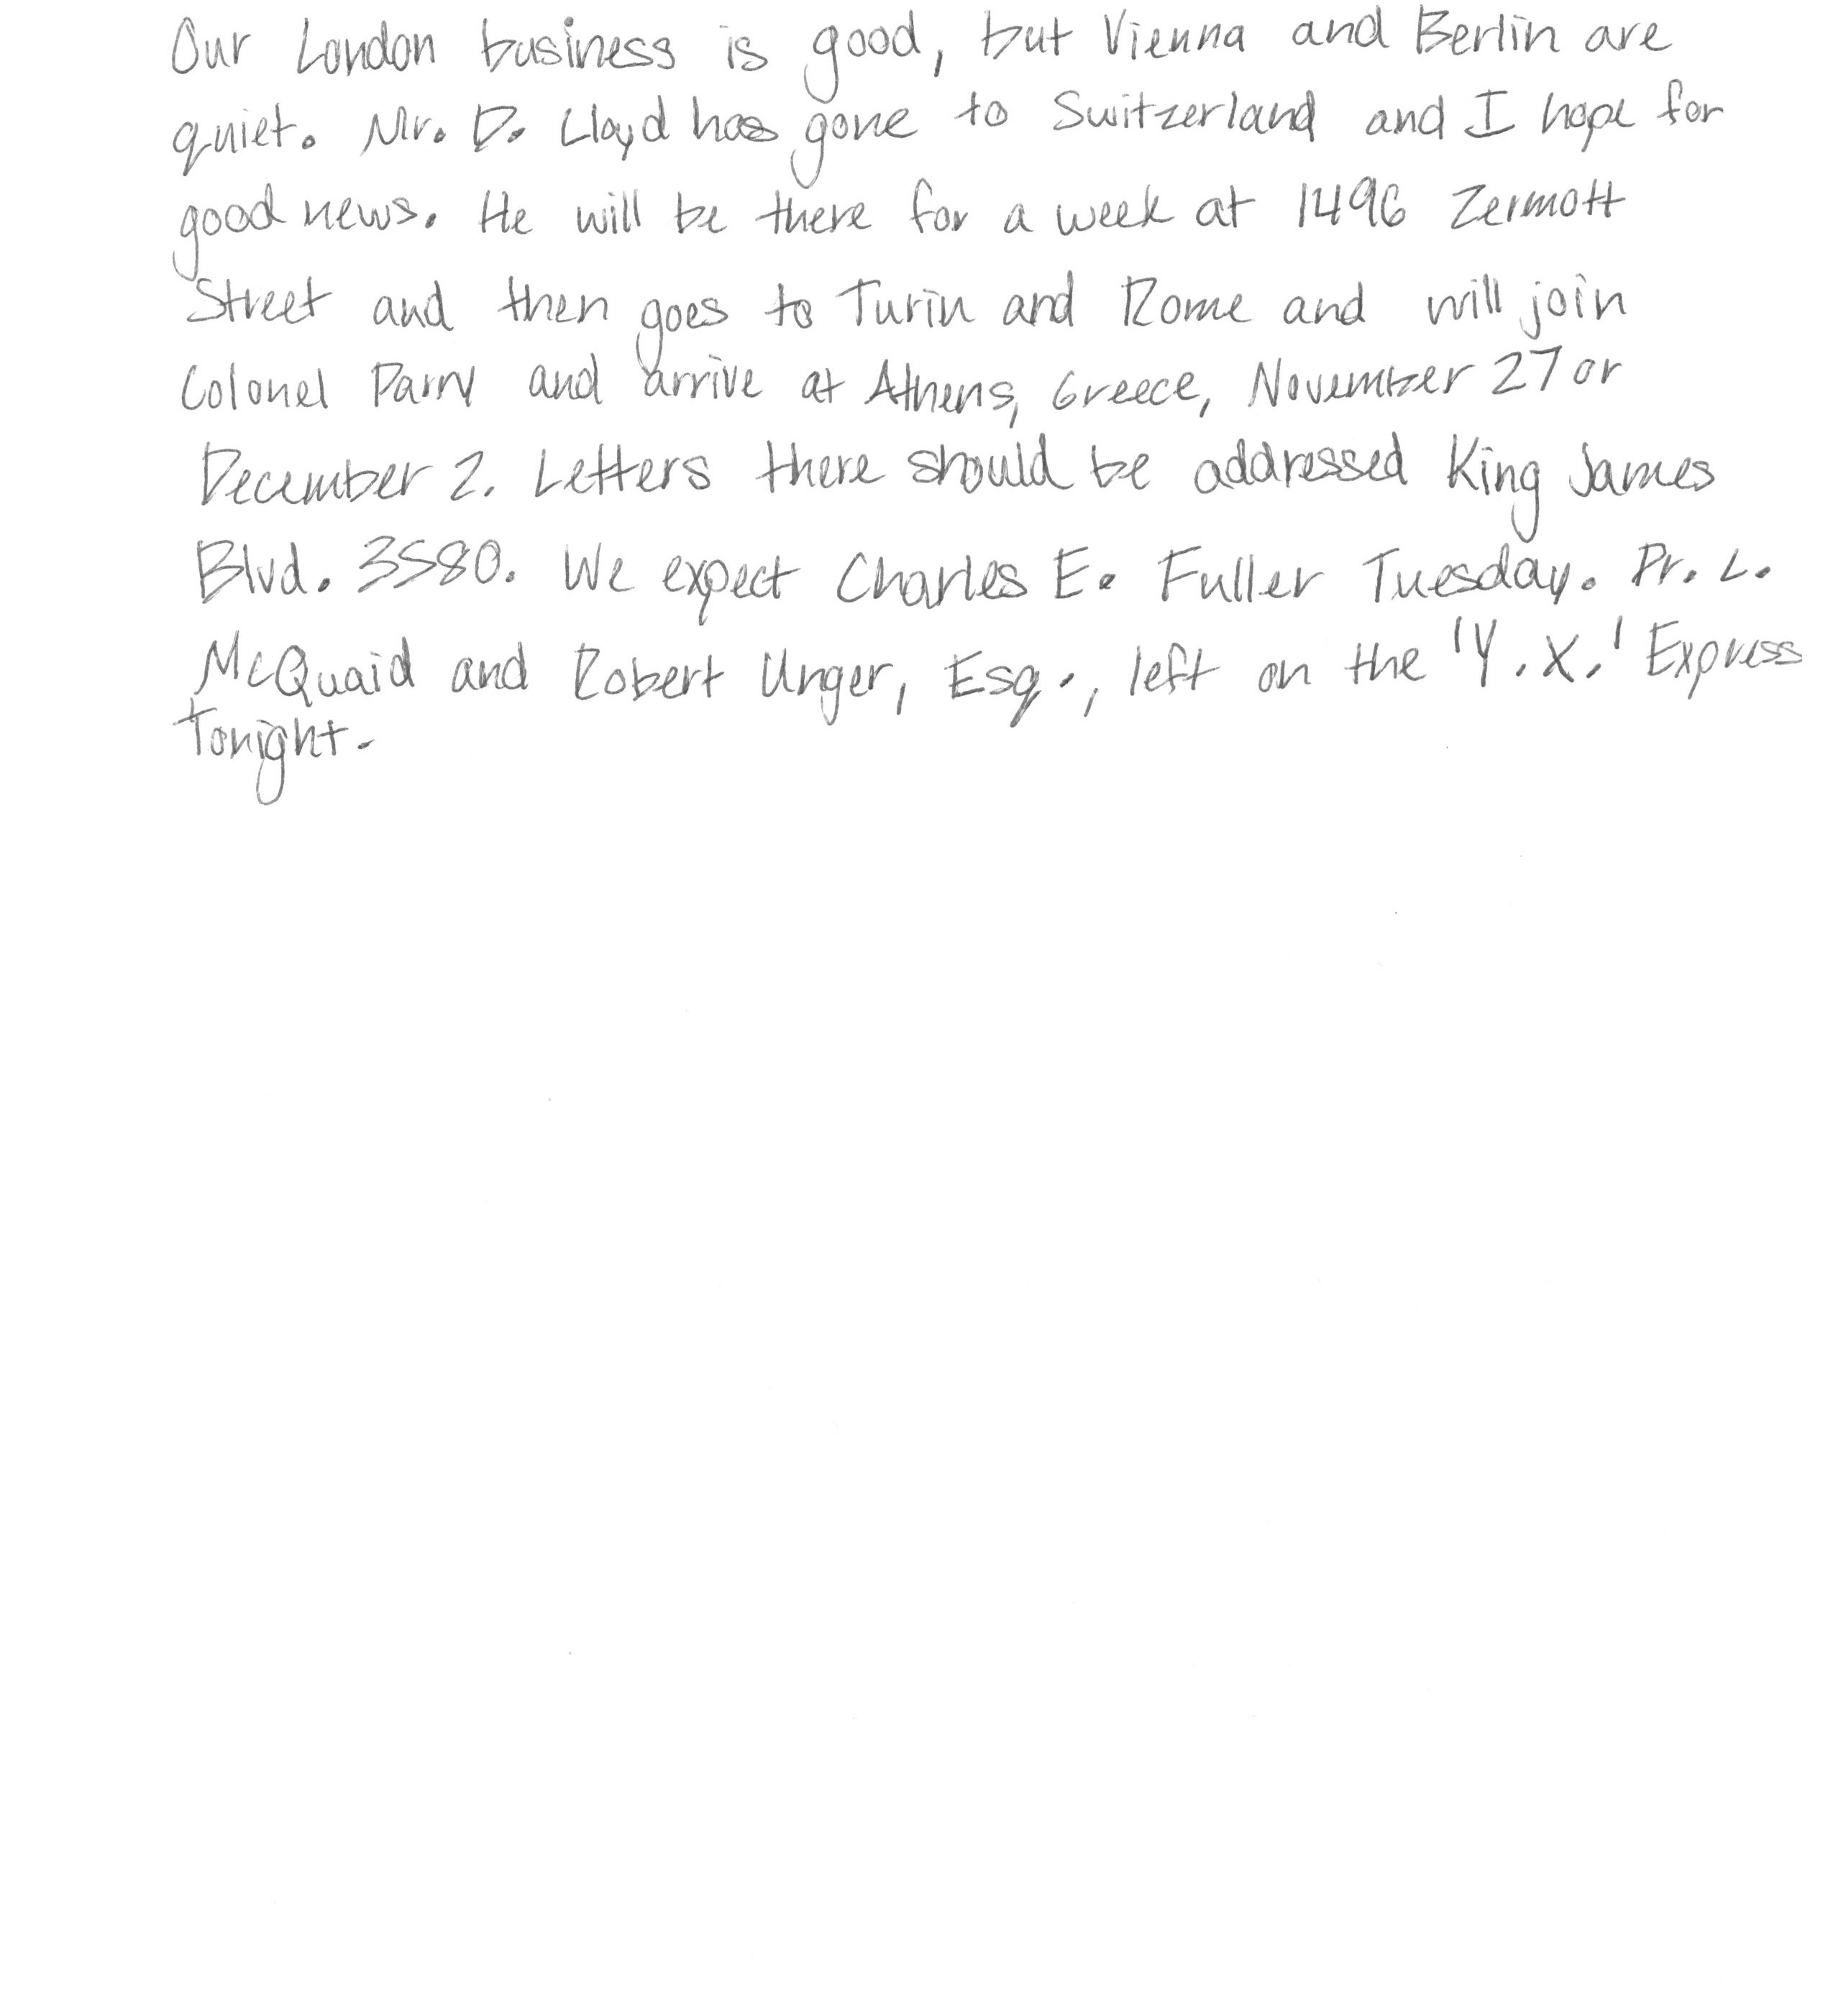 Our London business is good, but Vienna and Berlin are
quiet. Mr. D. Lloyd has gone to Switzerland and I hope for
good news. He will be there for a week at 1496 Zermott
Street and then goes to Turin and Rome and will join
Colonel Parry and arrive at Athens, Greece, November 27 or
December 2. Letters there should be addressed King James
Blvd. 3580. We expect Charles E. Fuller Tuesday. Dr. L.
McQuaid and Robert Unger, Esq., left on the 'Y.X.' Express
Tonight.